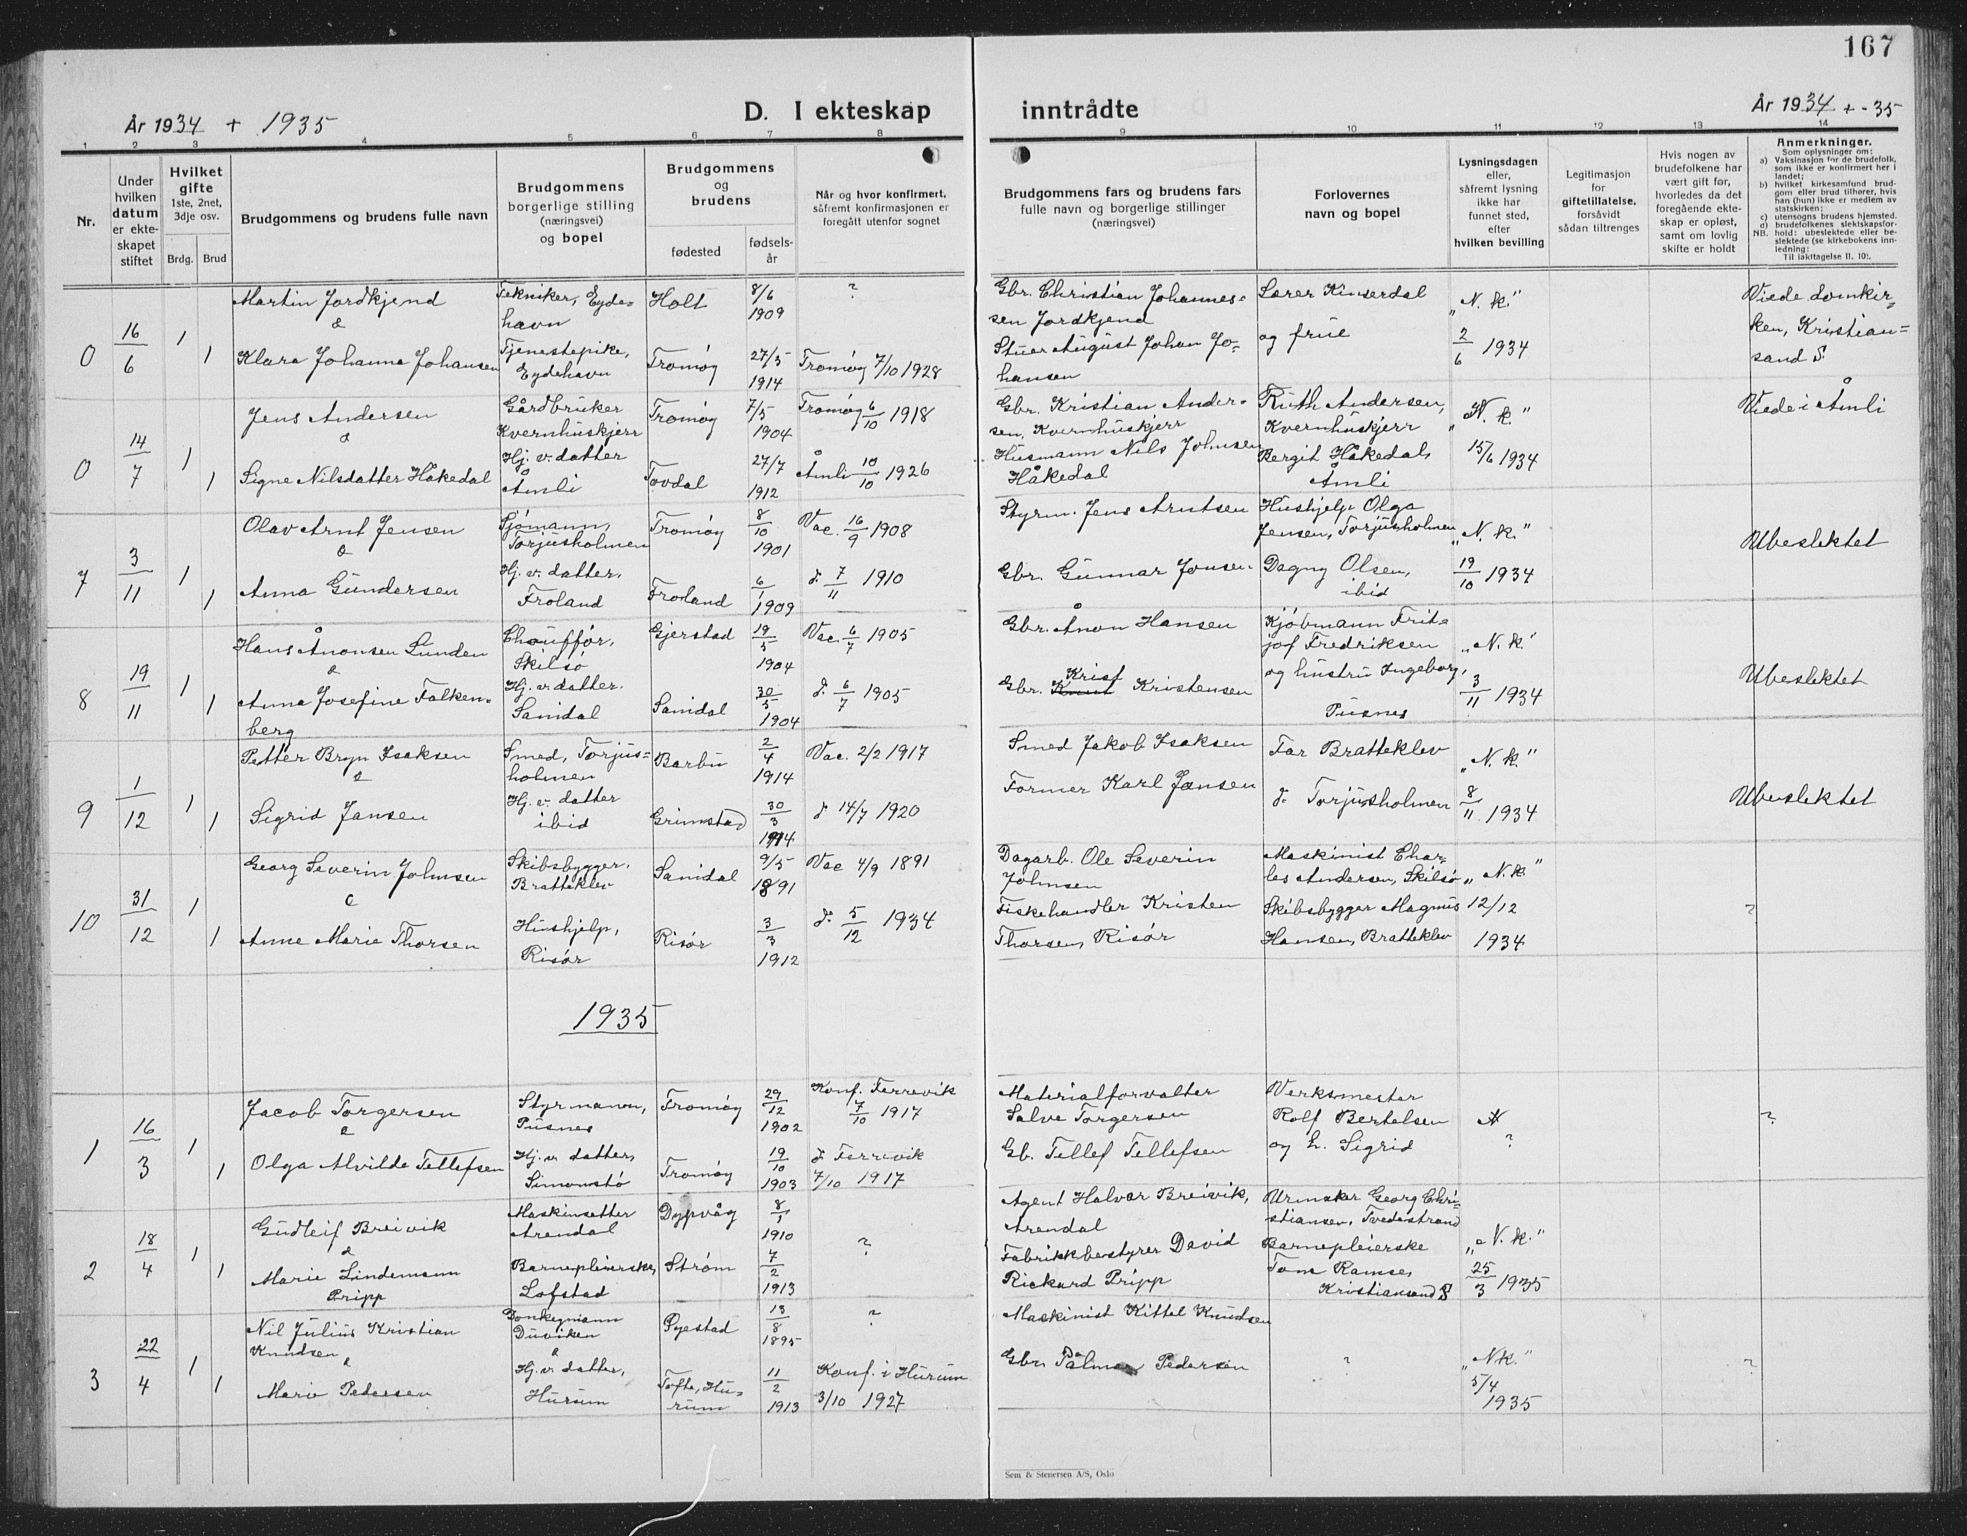 167
År 1934 + 1935
D. I ekteskap inntrådte
År 1934 + -35
1 2 3 4 5 6 7 8 9 10 11 12 13 14
Nr.
Under hvilken datum er ekteskapet stiftet
Hvilket gifte 1ste, 2net, 3dje osv.
Brdg. Brud
Brudgommens og brudens fulle navn
Brudgommens borgerlige stilling (næringsvei) og bopel
Brudgommens og brudens
fødested
fødselsår
Når og hvor konfirmert, såfremt konfirmasjonen er foregått utenfor sognet
Brudgommens fars og brudens fars fulle navn og borgerlige stillinger (næringsvei)
Forlovernes navn og bopel
Lysningsdagen eller, såfremt lysning ikke har funnet sted, efter hvilken bevilling
Legitimasjon for giftetillatelse, forsåvidt sådan tiltrenges
Hvis nogen av brudefolkene har vært gift før, hvorledes da det foregående ekteskap er opløst, samt om lovlig skifte er holdt
Anmerkninger.
Som oplysninger om:
a) Vaksinasjon for de brudefolk, som ikke er konfirmert her i landet;
b) hvilket kirkesamfund brudgom eller brud tilhører, hvis han (hun) ikke er medlem av statskirken;
c) utensogns brudens hjemsted.
d) brudefolkenes slektskapsforhold: ubeslektede eller beslektede (se kirkebokens innledning:
NB.
Til iakttagelse II, 10).
0 16/6 1 Martin Jordkjend Tekniker, Eydehavn Holt 8/6 1909 ? Gbr. Christian Johannessen Jordkjend Lærer Kinserdal og frue "N.k." 2/6 1934 Viede Domkirken, Kristiansand S.
&
1 Klara Johanna Johansen Tjenestepike, Eydehavn Tromøy 27/5 1914 Tromøy 7/10 1928 Stuer August Johan Johansen
0 14/7 1 Jens Andersen Gårdbruker Kvernhuskjerr Tromøy 7/5 1904 Tromøy 6/10 1918 Gbr. Kristian Andersen, Kvernhuskjerr Ruth Andersen, Kvernhuskjerr "N.k." 15/6 1934 Viede i Åmli
&
1 Signe Nilsdatter Håkedal Hj. v. datter Åmli Tovdal 27/7 1912 Åmli 10/10 1926 Husmann Nils Johnsen Håkedal Bergit Håkedal, Åmli
7 3/11 1 Olav Arnt Jensen Sjømann, Torjusholmen Tromøy 8/10 1901 Vac. 16/9 1908 Styrm. Jens Arntsen Hushjelp Olga Jensen, Torjusholmen "N.k." 19/10 1934 Ubeslektet
&
1 Anna Gundersen Hj. v. datter, Froland Froland 6/1 1909 d. 7/11 1910 Gbr. Gunnar Jonsen Dagny Olsen, ibid
8 19/11 1 Hans Ånonsen Lunden Chauffør, Skilsø Gjerstad 19/5 1904 Vac. 6/7 1905 Gbr. Ånon Hansen Kjøbmann Fritjof Fredriksen og hustru Ingeborg, Pusnes "N.k." 3/11 1934 Ubeslektet
&
1 Anna Josefine Falkenberg Hj. v. datter. Sanidal Sanidal 30/5 1904 d. 6/7 1905 Gbr. Knut Krist Kristensen
9 1/12 1 Petter Bryn Isaksen Smed, Torjusholmen Barbu 2/4 1914 Vac. 2/2 1917 Smed Jakob Isaksen Far Bratteklev "N.k." 8/11 1934 Ubeslektet
&
1 Sigrid Jansen Hj. v. datter ibid Grimstad 30/3 1914 d 14/7 1920 Former Karl Jansen d. Torjusholmen
10 31/12 1 Georg Severin Johnsen Skibsbygger. Bratteklev Sanidal 9/5 1891 Vac 4/9 1891 Dagarb. Ole Severin Johnsen Maskinist Charles Andersen, Skilsø "N.k" 12/12 1934 ?
&
1 Anne Marie Thorsen Hushjelp, Risør Risør 3/3 1912 d. 5/12 1934 Fiskehandler Kristen Thorsen, Risør Skibsbygger Magnus Hansen, Bratteklev
1935
1 16/3 1 Jacob Torgersen Styrmann, Pusnes Tromøy 29/12 1902 Konf. Færevik 7/10 1917 Materialforvalter Salve Torgersen Verksmester Rolf Bertelsen og h. Sigrid N ? ?
&
1 Olga Alvilde Tellefsen Hj. v. datter, Simonstø Tromøy 19/10 1903 d Færevik 7/10 1917 Gb. Tellef Tellefsen
2 18/4 1 Gudleif Breivik Maskinsetter Arendal Dypvåg 8/1 1910 ? Agent Halvor Breivik, Arendal Urmaker Georg Christiansen, Tvedestrand "N.k." 25/3 1935
&
1 Marie Lindemann Pripp Barnepleierske, Lofstad Strøm 7/2 1913 Fabrikkbestyrer David Rickard Pripp Barnepleierske Tom Ramse, Kristiansand S
3 22/4 1 Nil Julius Kristian Knudsen Donkeymann Duviken Øyestad 13/8 1895 ? Maskinist Kittel Knudsen ? "Nk." 5/4 1935 ?
&
1 Marie Pedersen Hj. v. datter, Hurum Tofte, Hurum 11/2 1913 Konf. i Hurum 3/10 1927 Gbr. Palmer Pedersen
Sem & Stenersen A/S, Oslo